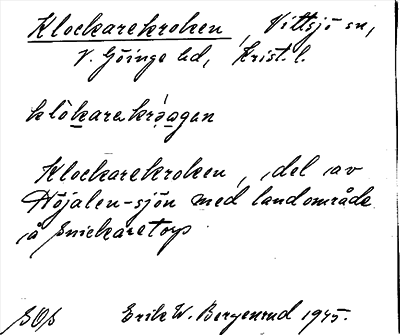 Klockarekroken, Vittsjö sn,
V. Göinge hd, Krist. l.
klòkarekrå̀agan
Klockarekroken, del av
Höjalen-sjön med landområde
å Snickaretorp
Erik W. Bergenrud 1945.